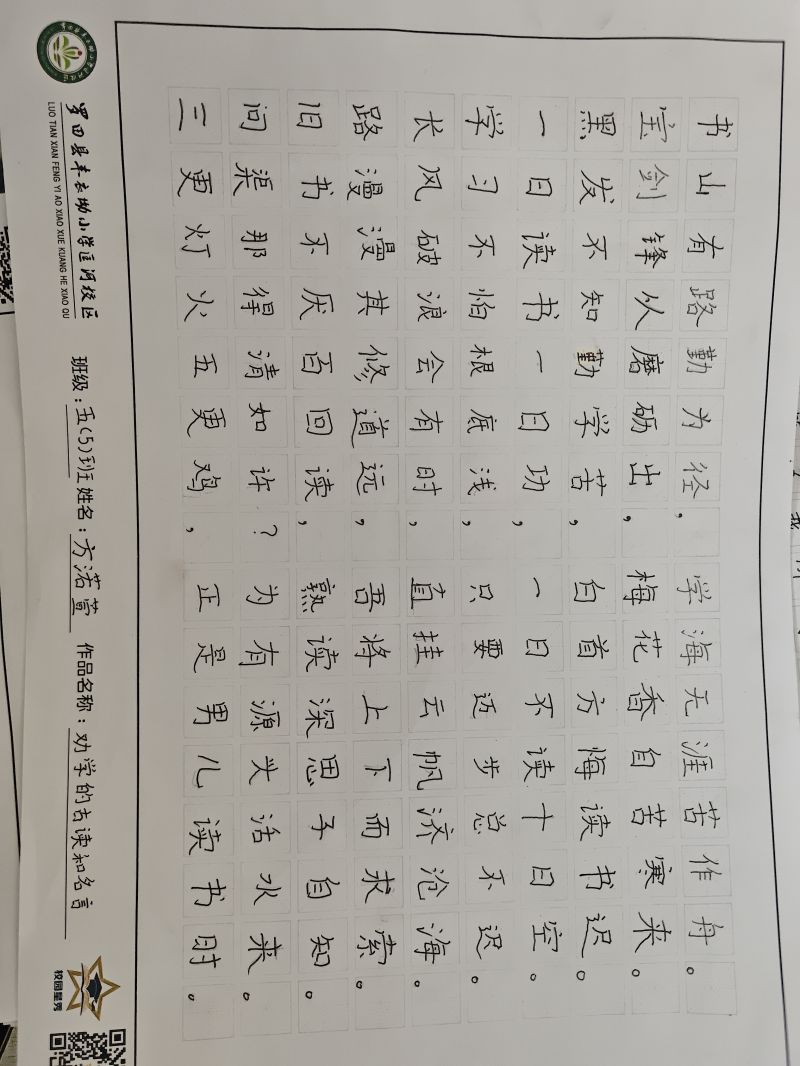 书山有路勤为径，学海无涯苦作舟。
宝剑锋从磨砺出，梅花香自苦寒来。
黑发不知勤学苦，白首方悔读书迟。
一日读书一日功，一日不读十日空。
学习不怕根底浅，只要迈步总不迟。
长风破浪会有时，直挂云帆济沧海。
路漫漫其修道远，吾将上下而求索。
旧书不厌百回读，熟读深思子自知。
问渠那得清如许？为有源头活水来。
三更灯火五更鸡，正是男儿读书时。
罗田县丰衣坳小学匡河校区
LUO TIAN XIAN FENG YI AO XIAO XUE KUANG HE XIAO QU
班级：五(5)班 姓名：方渃萱 作品名称：劝学的古读和名言
校园星秀